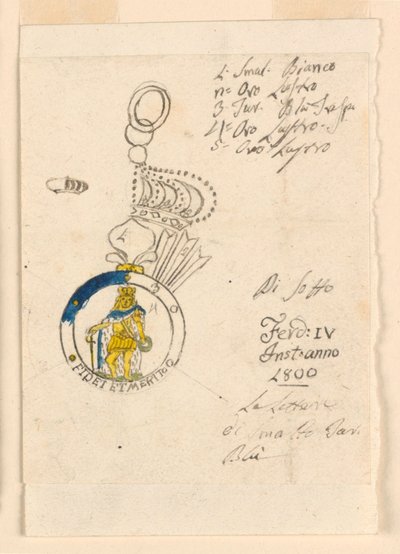 1: Smal. Bianco
no Oro Lustro
3 Tur. Blu Trasp.
4° Oro Lustro
5° Oro Lustro
Di Sotto
Ferd: IV
Inst: anno
1800
FIDEI ET MERITO
Le Lettere
di Smalto
Blù